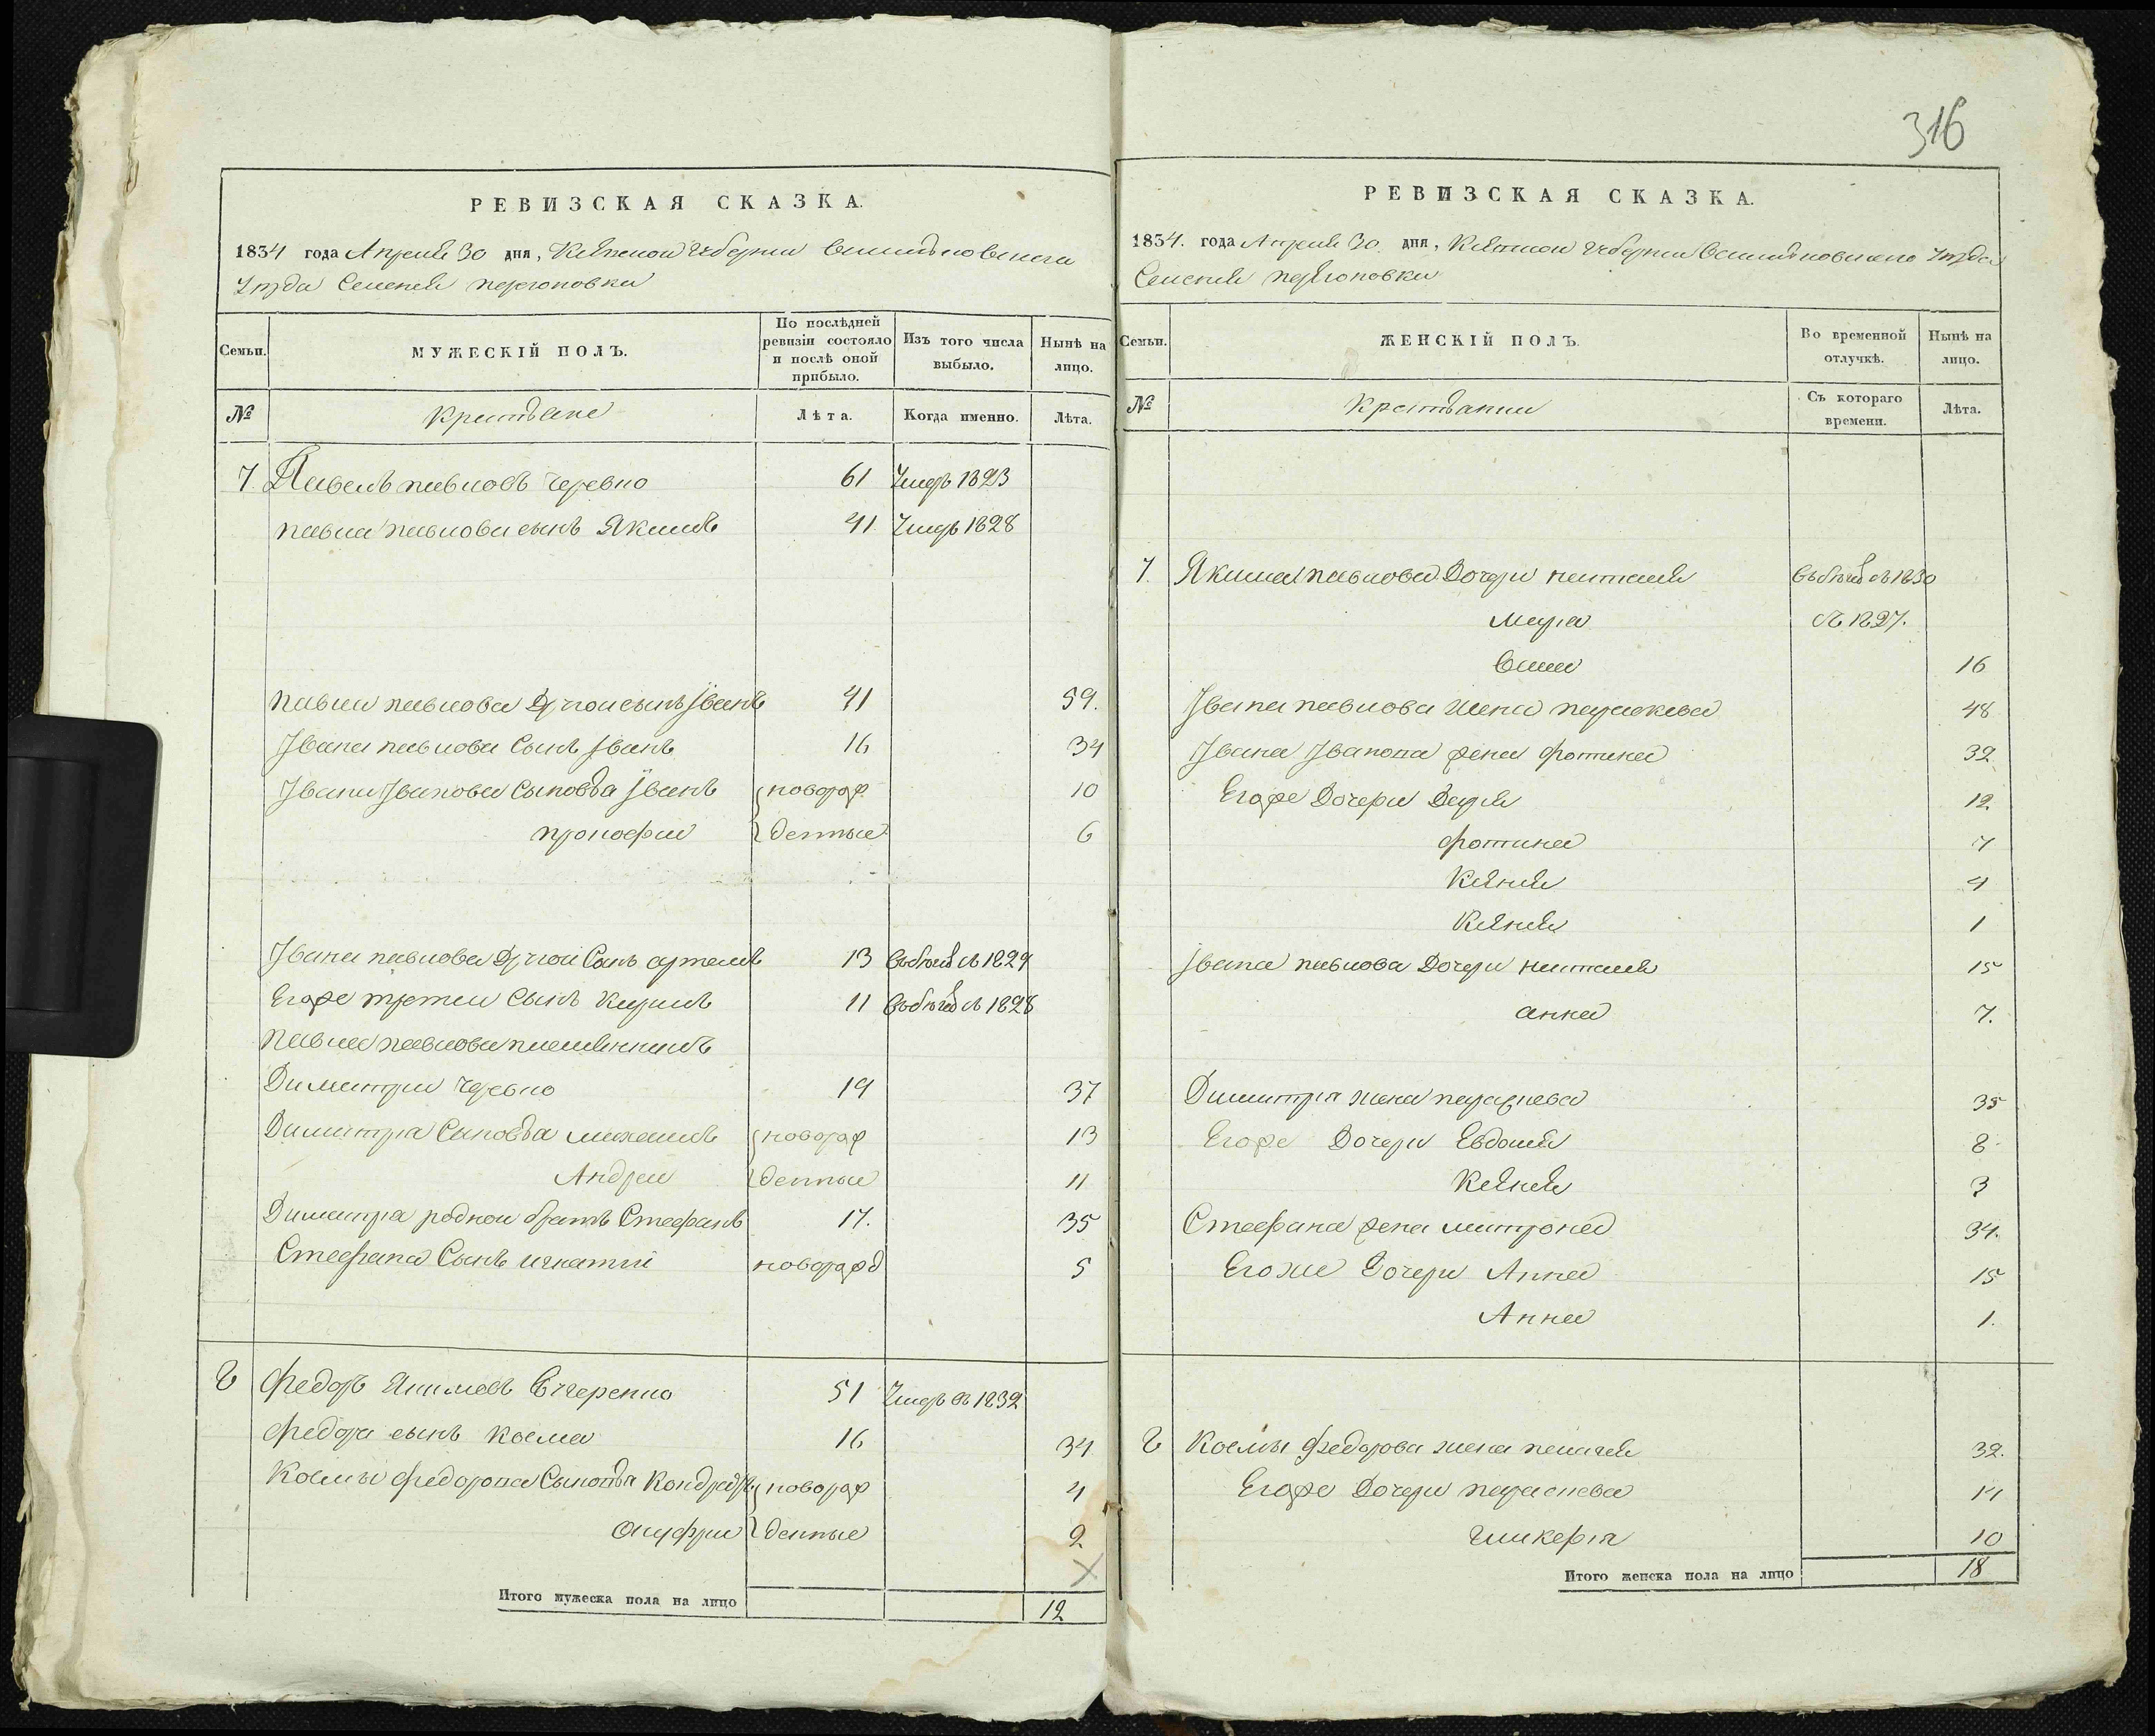 316
РЕВИЗСКАЯ СКАЗКА.
1834 года Апреля 30 дня, Киевской Губернии
Уезда Селения
Семьи.
МУЖЕСКІЙ ПОЛЪ.
По послѣдней ревизіи состояло и послѣ оной прибыло.
Изъ того числа выбыло.
Нынѣ на лицо.
№
Крестьяне
Лѣта.
Когда именно.
Лѣта.
7. Павелъ павловъ Черевко 61 Умеръ 1823
павла павлова сынъ Якимъ 41 Умеръ 1828
павла павлова Другой сынъ Іванъ 41 59.
Івана павлова Сынъ Іванъ 16 34
Івана Іванова Сыновъя Іванъ новорож 10
прокофии денные 6
Івана павлова Другой Сынъ артемъ 13 въ бегах съ 1829
Егоже третии Сынъ Кирилъ 11 въ бегах съ 1828
Павла павлова племянникъ
Димитрии Черевко 19 37
Димитрия Сыновъя михаилъ новорож 13
Андреи денные 11
Димитра роднои братъ Стефанъ 17. 35
Стефана Сынъ игнатии новорожд 5
8 Федоръ 51 Умеръ въ 1832
Федора сынъ Козма 16 34
Козмы федорова Сыновъя новорож 4
Онуфрии денные 2
Итого мужеска пола на лицо 12
РЕВИЗСКАЯ СКАЗКА.
1834. года Апреля 30 дня, Киевской Губернии Уезда
Селения
Семьи.
ЖЕНСКІЙ ПОЛЪ.
Во временной отлучкѣ.
Нынѣ на лицо.
№
Крестьянки
Съ котораго времени.
Лѣта.
7. Якима павлова Дочери наталия въ бегах съ 1830
мария съ 1827.
16
Івана павлова жена параскева 48
Івана Іванова жена фотина 32
Егоже Дочери Дария 12
фотина 7
Ксения 4
Ксения 1
Івана павлова Дочери наталия 15
анна 7.
Димитрия жена параскева 35
Егоже Дочери Евдокия 8
Ксения 3
Стефана жена матрона 34.
Егоже Дочери Анна 15
Анна 1.
8 Козмы федорова жена пелагея 32.
Егоже Дочери параскева 14
гликерия 10
Итого женска пола на лицо 18